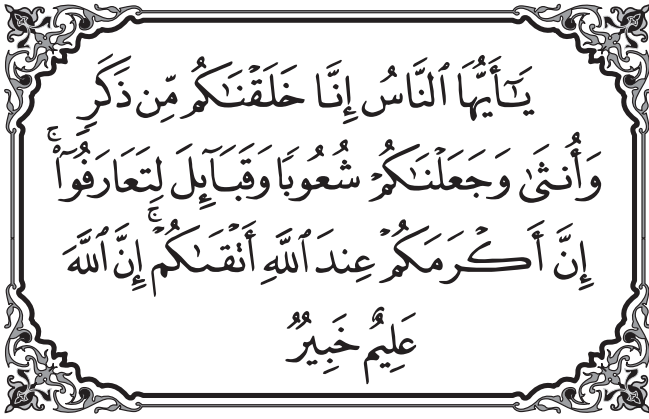 يَـٰٓأَيُّهَا ٱلنَّاسُ إِنَّا خَلَقْنَـٰكُم مِّن ذَكَرٍ
وَأُنثَىٰ وَجَعَلْنَـٰكُمْ شُعُوبًا وَقَبَآئِلَ لِتَعَارَفُوٓا۟ ۚ
إِنَّ أَكْرَمَكُمْ عِندَ ٱللَّهِ أَتْقَىٰكُمْ ۚ إِنَّ ٱللَّهَ
عَلِيمٌ خَبِيرٌ